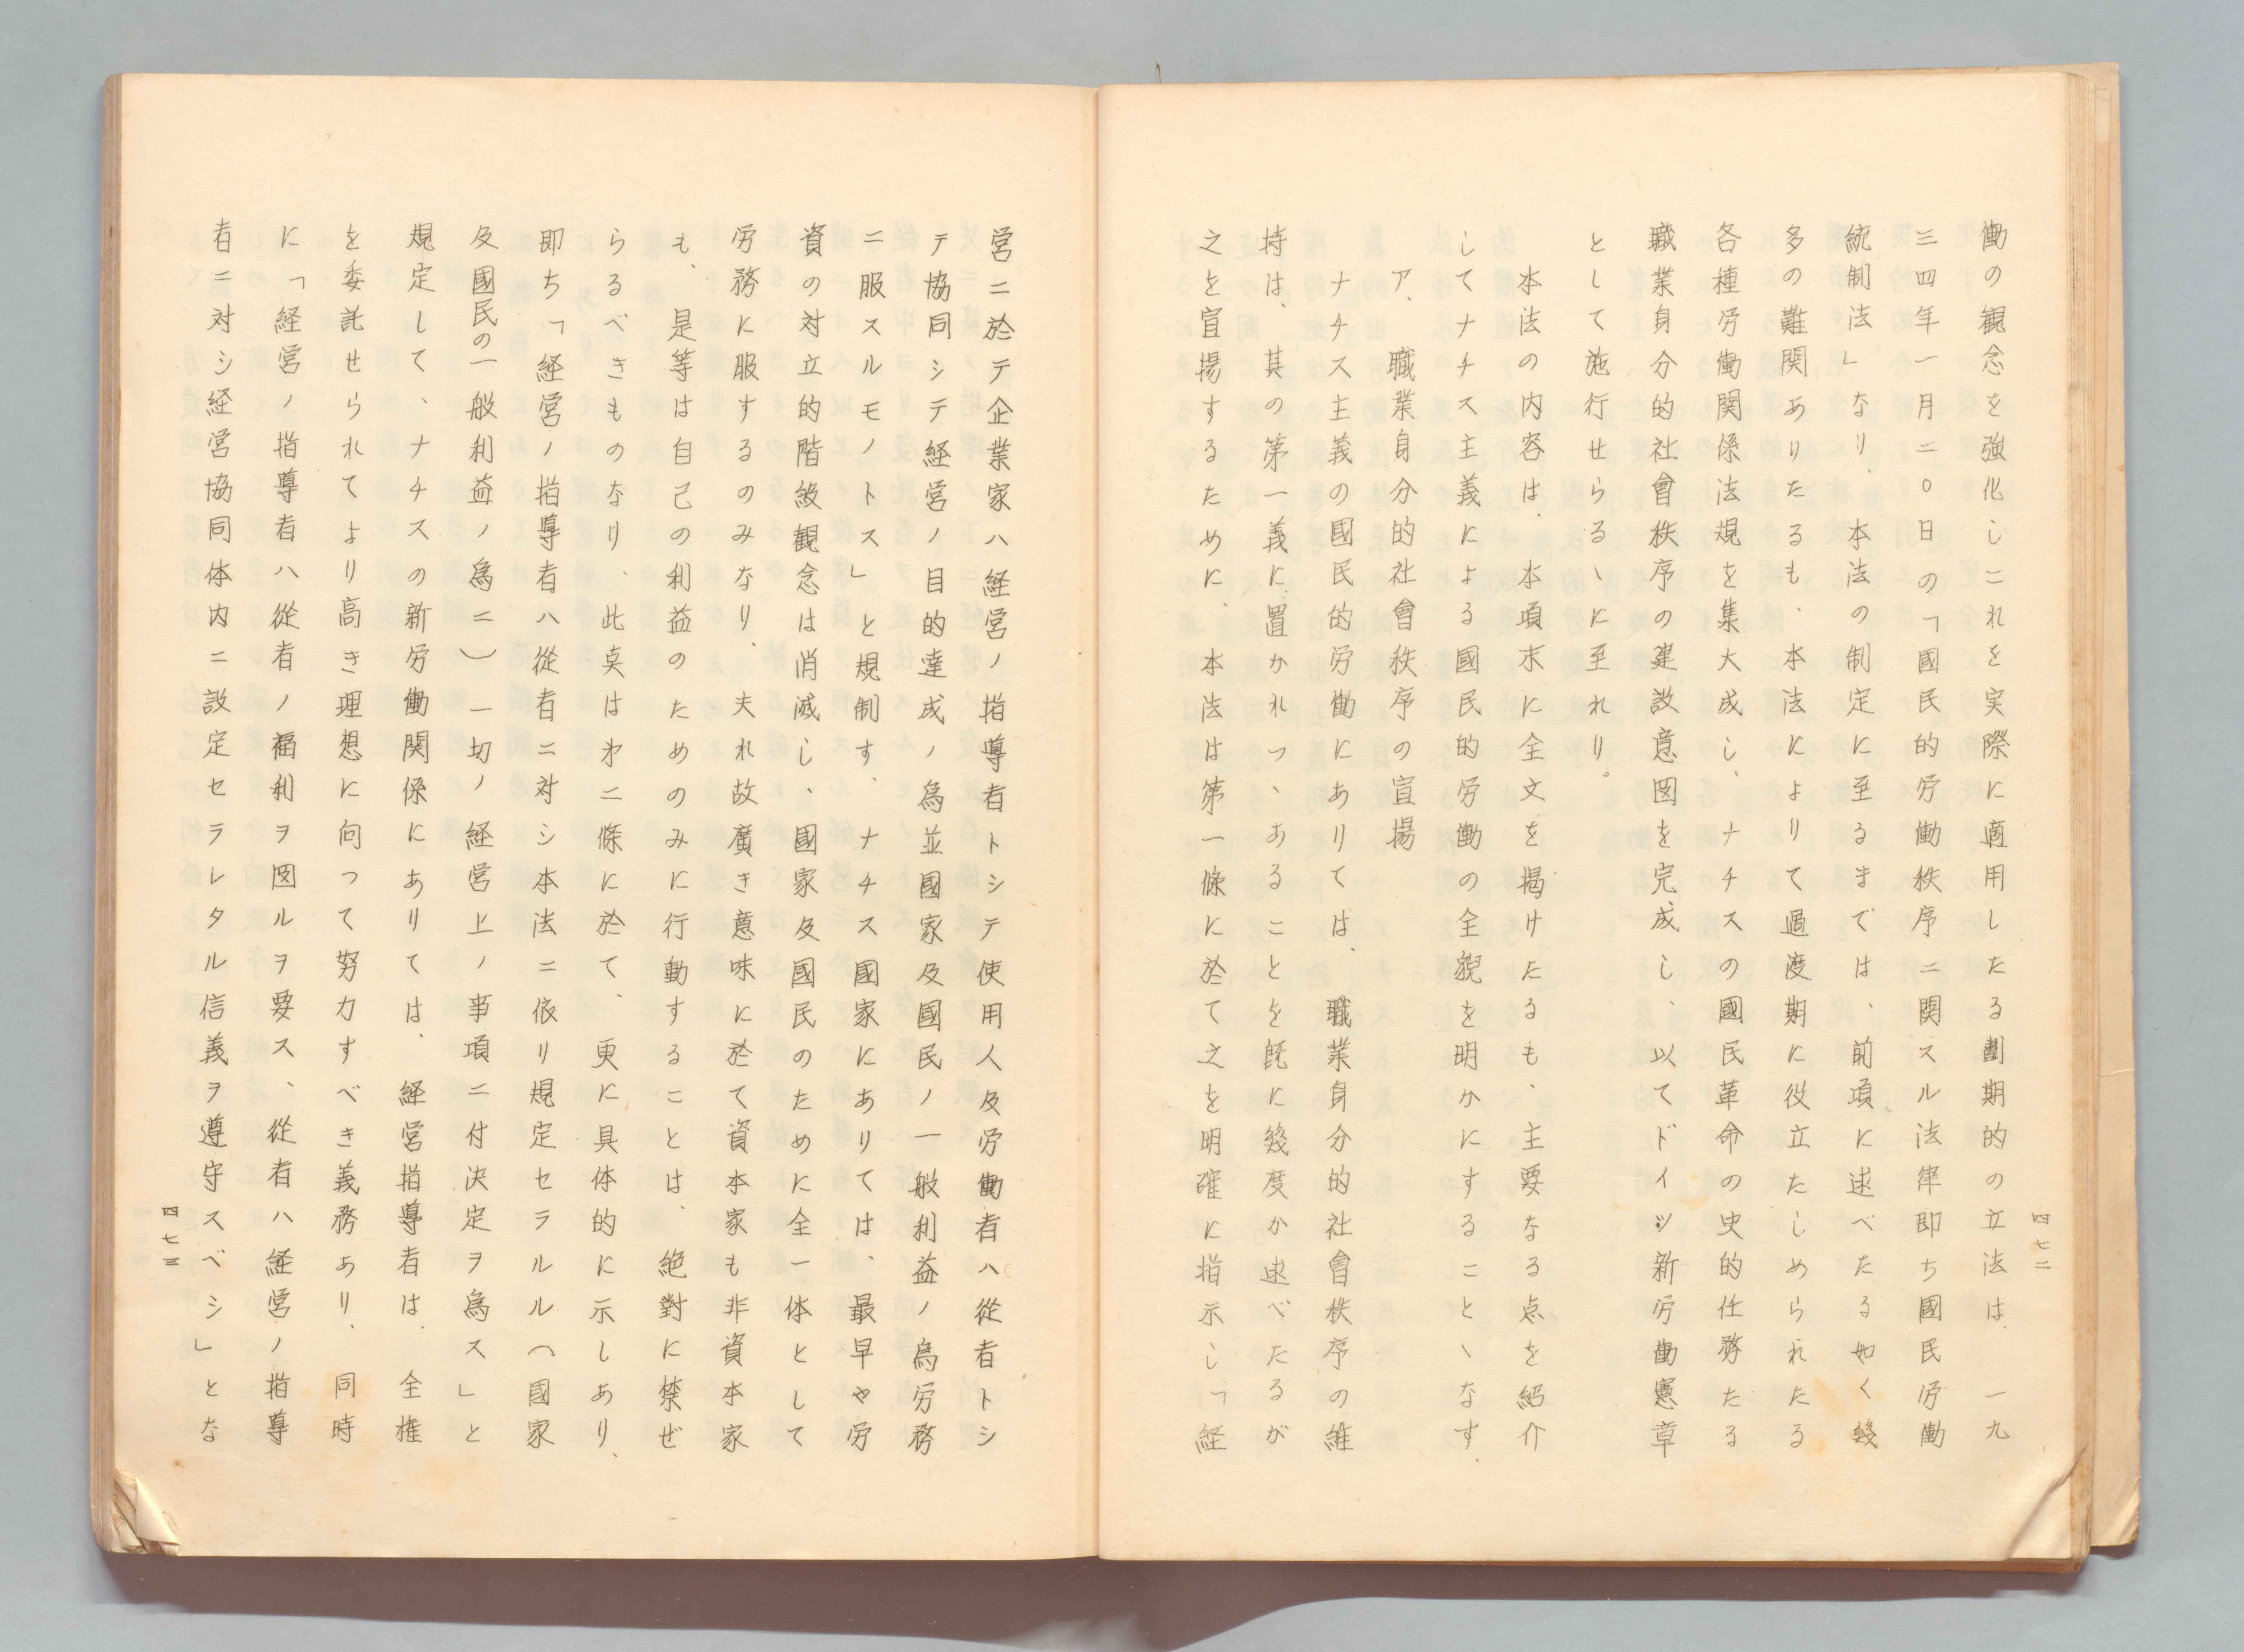 四七二
働の観念を強化しこれを実際に適用したる劃期的の立法は、一九
三四年一月二〇日の「國民的労働秩序ニ関スル法律即ち國民労働
統制法」なり、本法の制定に至るまでは、前項に述べたる如く幾
多の難関ありたるも、本法によりて過渡期に役立たしめられたる
各種労働関係法規を集大成し、ナチスの國民革命の史的任務たる
職業身分的社會秩序の建設意図を完成し、以てドイツ新労働憲章
として施行せらるゝに至れり。
本法の内容は、本項末に全文を掲けたるも、主要なる点を紹介
してナチス主義による國民的労働の全貌を明かにすることゝなす、
ア、職業身分的社會秩序の宣揚
ナチス主義の國民的労働にありては、職業身分的社會秩序の維
持は、其の第一義に置かれつゝあることを既に幾度か述べたるが
之を宣揚するために、本法は第一條に於て之を明確に指示し「経
営ニ於テ企業家ハ経営ノ指導者トシテ使用人及労働者ハ從者トシ
テ協同シテ経営ノ目的達成ノ為並國家及國民ノ一般利益ノ為労務
ニ服スルモノトス」と規制す、ナチス國家にありては、最早や労
資の対立的階級観念は消滅し、國家及國民のために全一体として
労務に服するのみなり、夫れ故廣き意味に於て資本家も非資本家
も、是等は自己の利益のためのみに行動することは、絶對に禁ぜ
らるべきものなり、此奌は㐧二條に於て、更に具体的に示しあり、
即ち「経営ノ指導者ハ從者ニ対シ本法ニ依リ規定セラルル（國家
及國民の一般利益ノ為ニ）一切ノ経営上ノ事項ニ付決定ヲ為ス」と
規定して、ナチスの新労働関係にありては、経営指導者は、全権
を委託せられてより高き理想に向って努力すべき義務あり、同時
に「経営ノ指導者ハ從者ノ福利ヲ図ルヲ要ス、從者ハ経営ノ指導
者ニ対シ経営協同体内ニ設定セラレタル信義ヲ遵守スベシ」とな
四七三